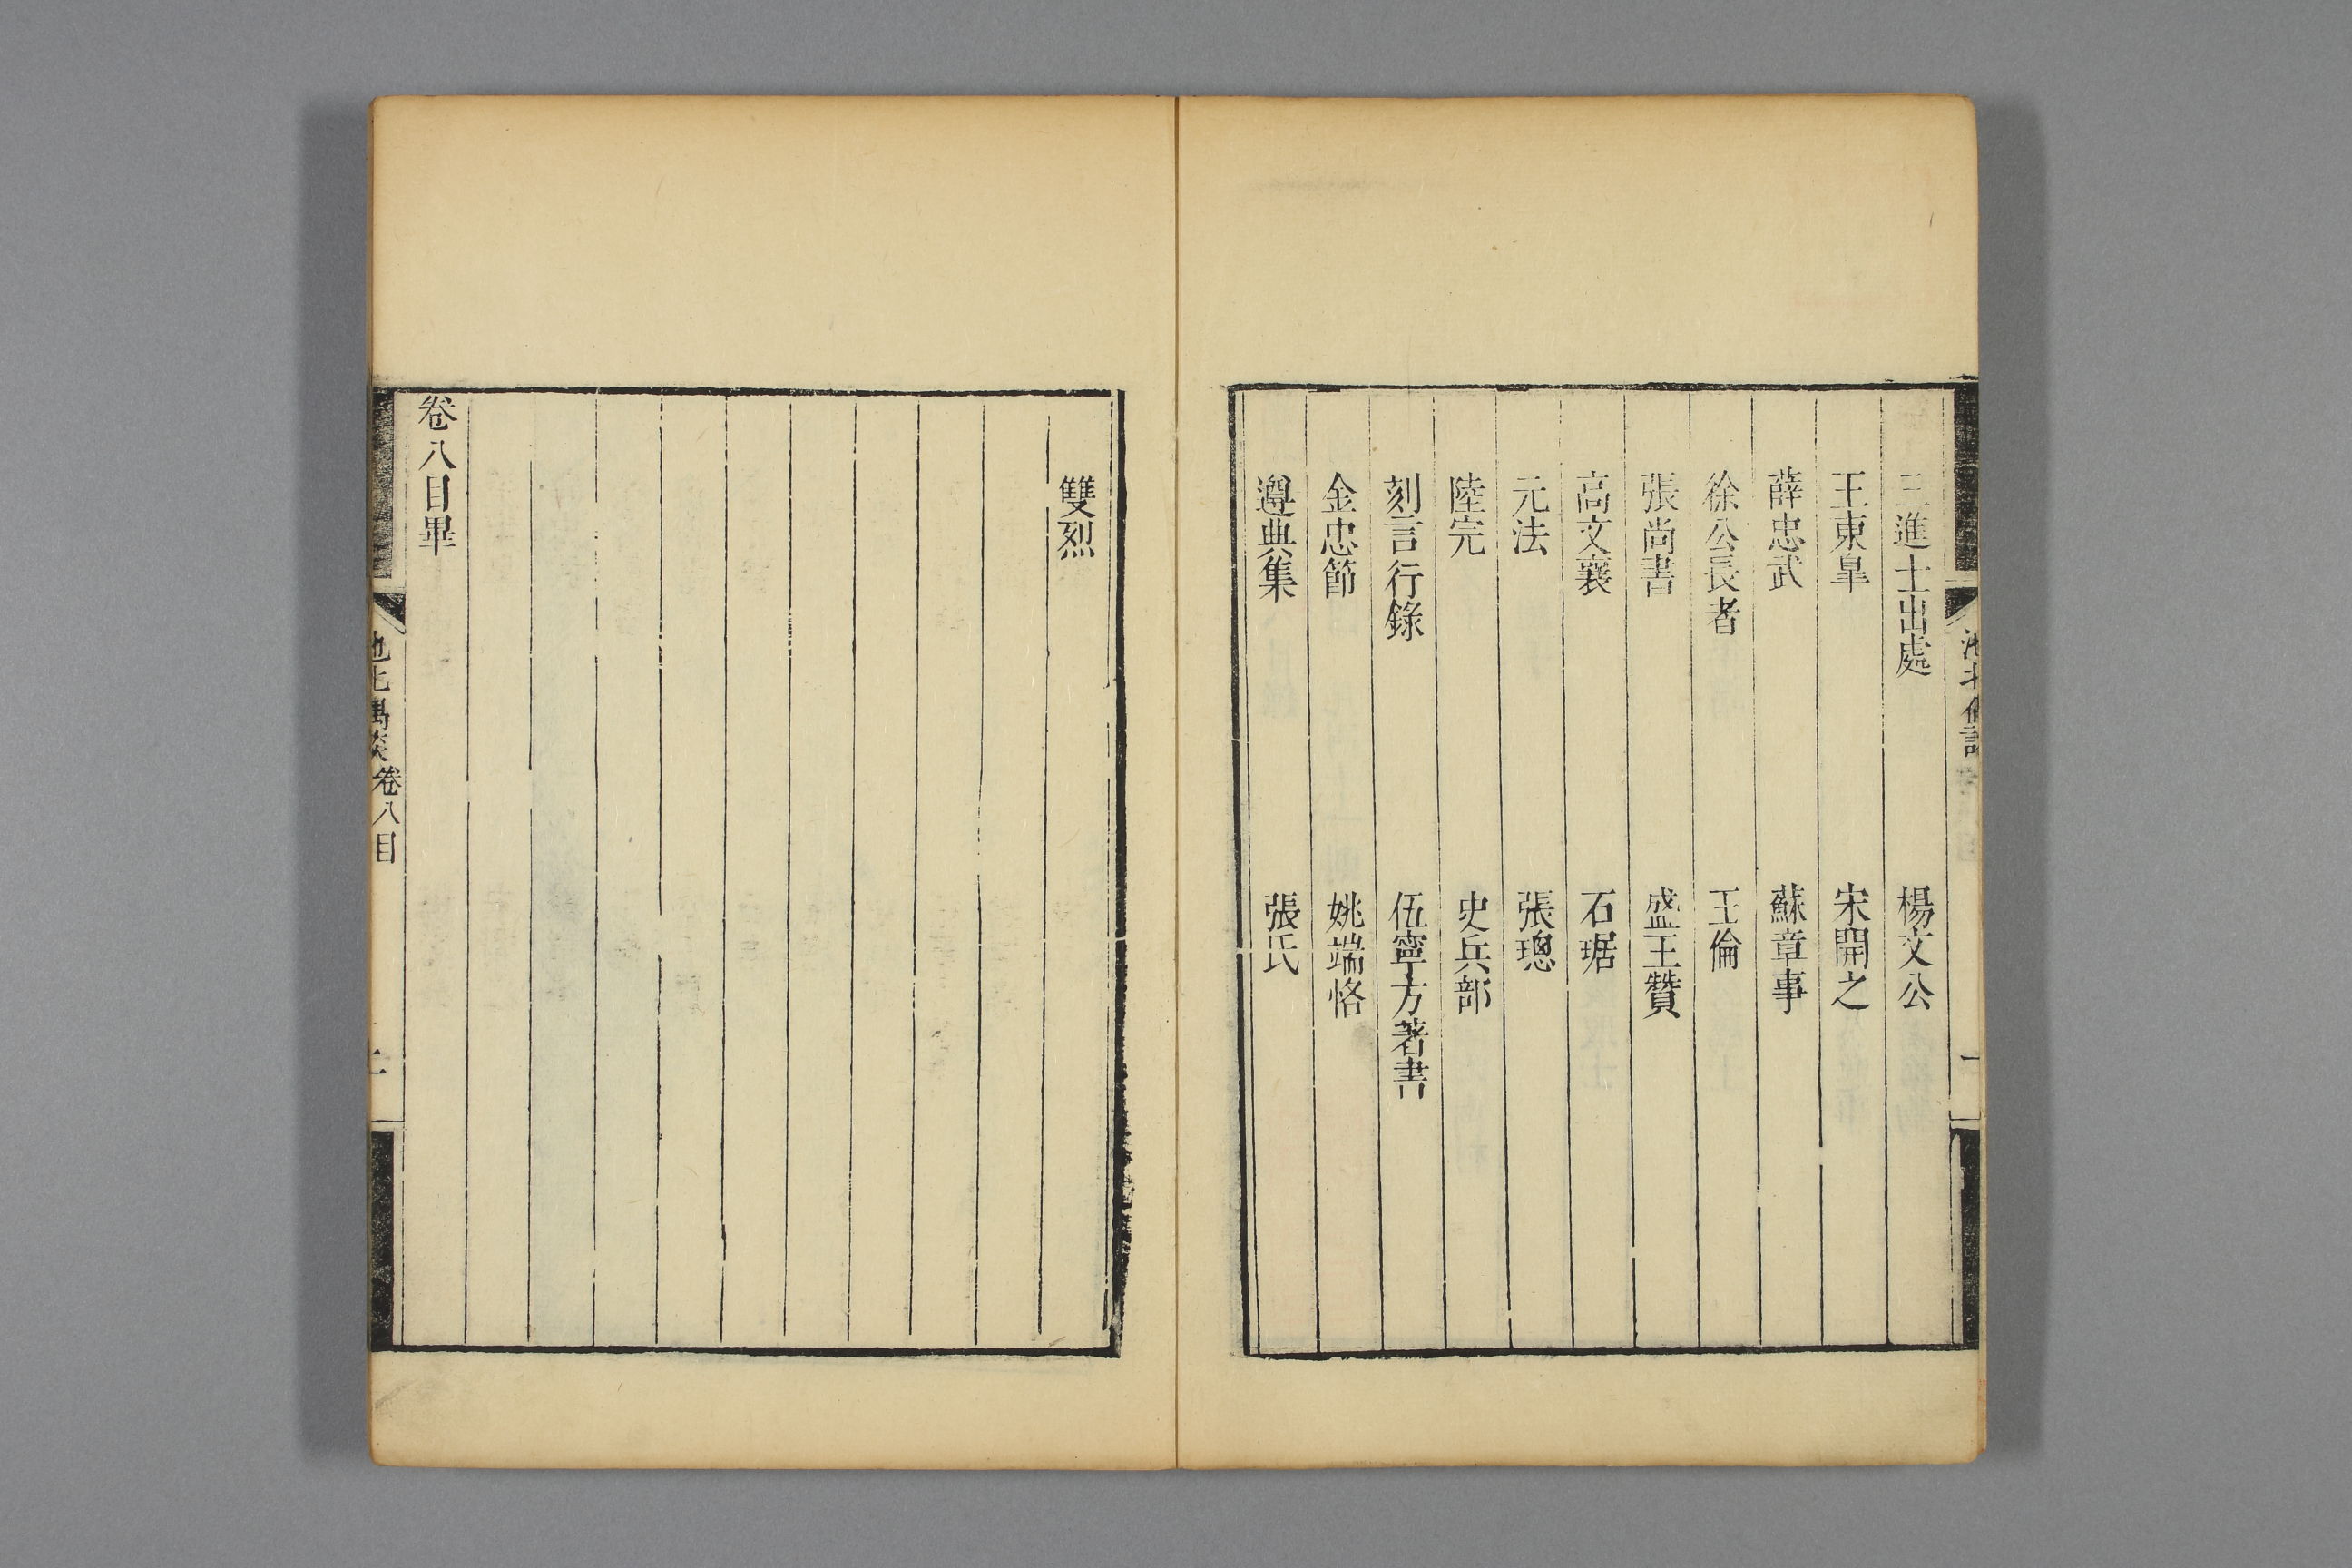 三進士出處　楊文公
王東皐　宋開之
薛忠武　蘇章事
徐公長者　王倫
張尚書　盛王贊
高文襄　石琚
元法　張璁
陸完　史兵部
刻言行錄　伍寧方著書
金忠節　姚端恪
遵典集　張氏
雙烈
卷八目畢
池北偶談卷八目
二